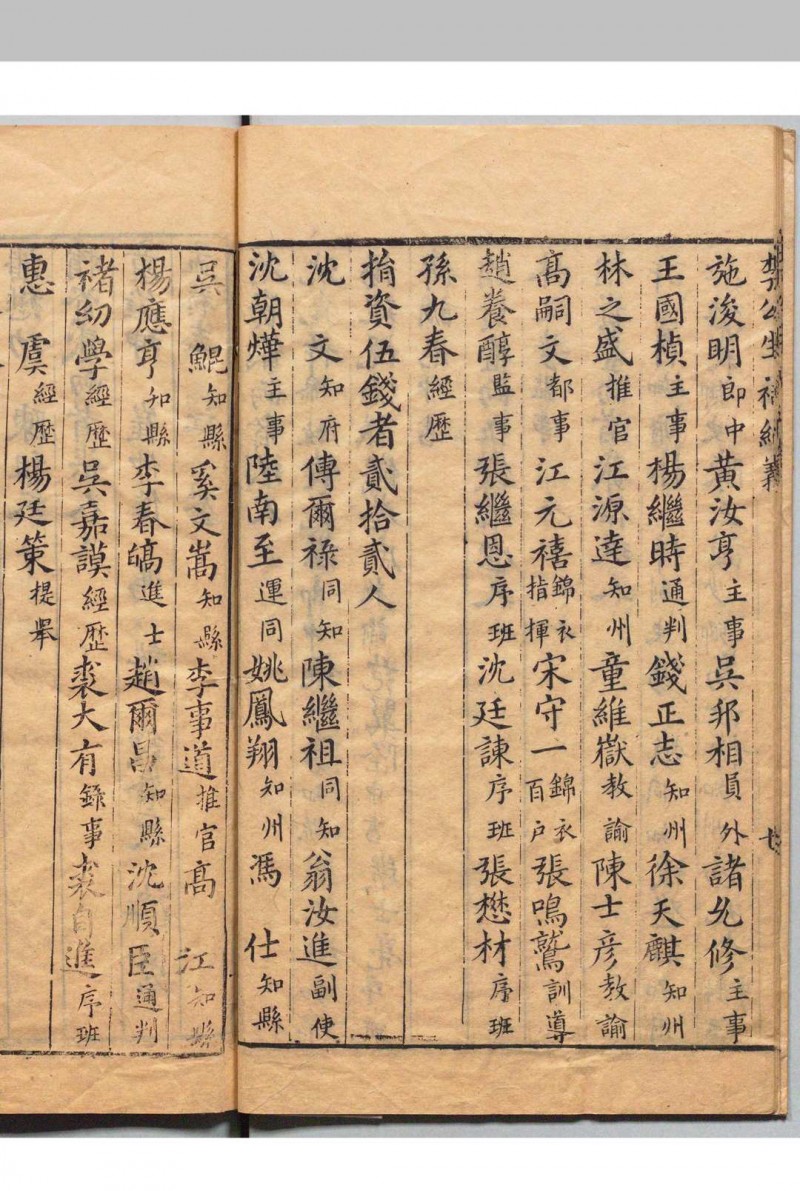 李公生祠紀義
施浚明郎中黃汝亨主事吳邦相員外諸允修主事
王國楨主事楊繼時通判錢正志知州徐天麒知州
林之盛推官江源達知州童維嶽教諭陳士彥教諭
高嗣文都事江元禧錦衣指揮宋守一錦衣百戶張鳴鷟訓導
趙養醇監事張繼恩序班沈廷諫序班張懋材序班
孫九春經歷
捐資伍錢者貳拾貳人
沈文知府傅爾祿同知陳繼祖同知翁汝進副使
沈朝燁主事陸南至運同姚鳳翔知州馮仕知縣
吳鯤知縣奚文嵩知縣李事道推官高江知縣
楊應亨知縣李春皜進士趙爾昌知縣沈順臣通判
褚幼學經歷吳嘉謨經歷裘大有錄事裘自進序班
惠虞經歷楊廷策提舉